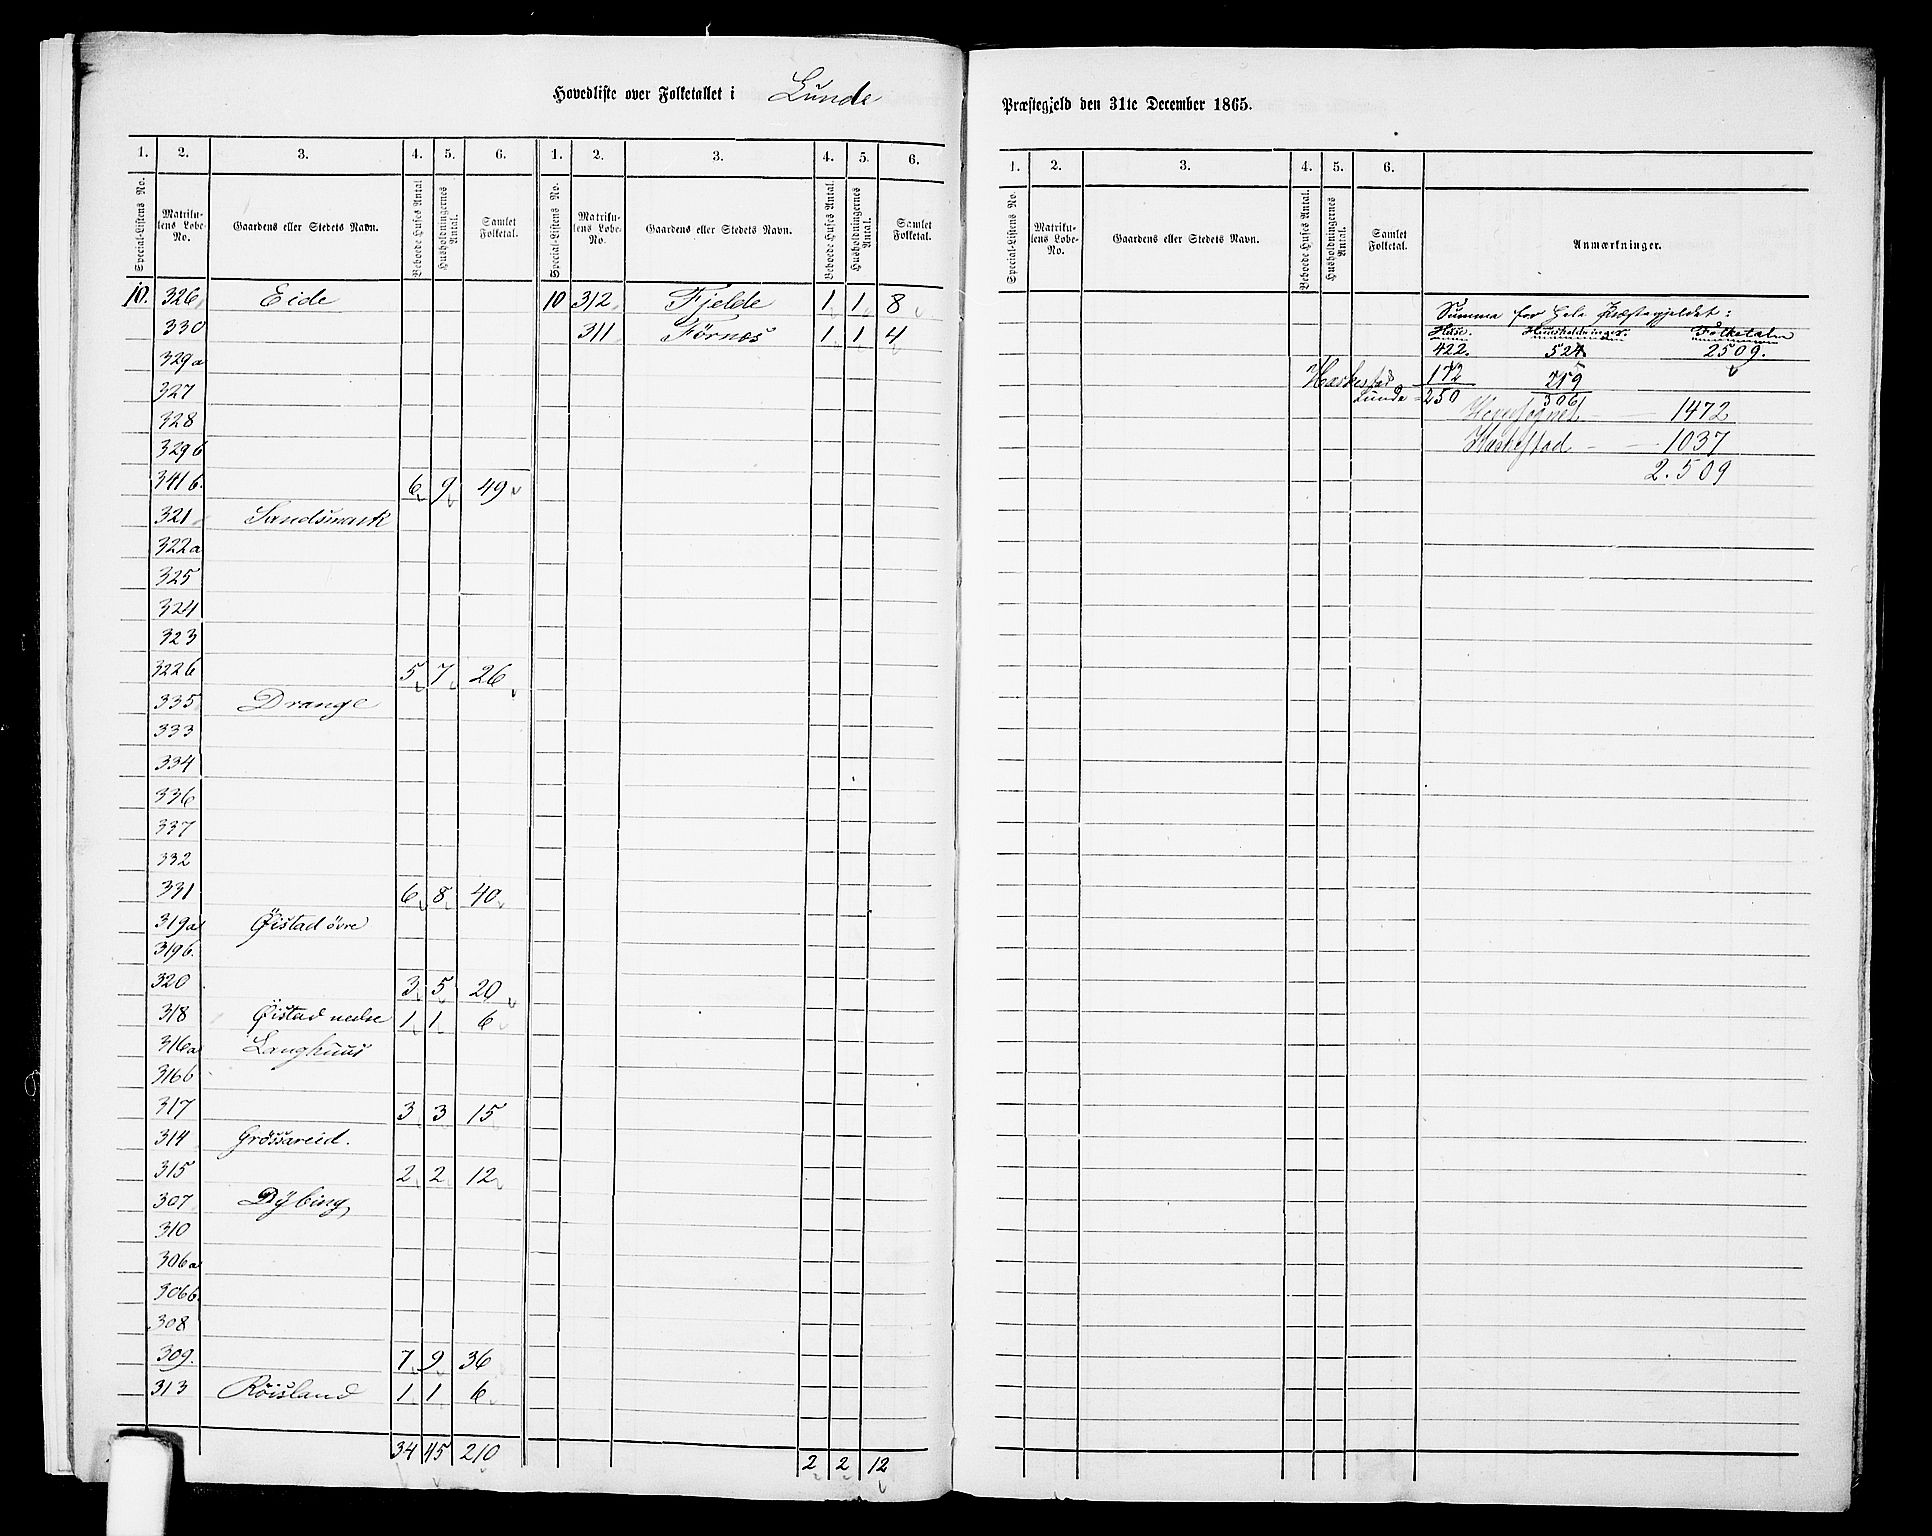 Hovedliste over Folketallet i Lunde Præstegjeld den 31te December 1865.
1. 2. 3. 4. 5. 6. 1. 2. 3. 4. 5. 6.
Special-Listens No. Matrikulens Løbe-No. Gaardens eller Stedets Navn. Beboede Huses Antal. Husholdningernes Antal. Samlet Folketal. Special-Listens No. Matrikulens Løbe-No. Gaardens eller Stedets Navn. Beboede Huses Antal. Husholdningernes Antal. Samlet Folketal.
10. 326 Eide 10 312 Fjelde 1 1 8
330 311 Förnes 1 1 4
329a
327
328
329b
341b. 6 9 49
321 Sandsmark
322a
325
324
323
322b 5 7 26
335 Drange
333
334
336
337
332
331 6 8 40
319a Øistad övre
319b.
320 3 5 20
318 Øistad nedre 1 1 6
316a Langhuus
316b
317 3 3 15
314 Grössareid.
315 2 2 12
307 Dybing
310
306a
306b.
308
309. 7 9 36
313 Röisland 1 1 6
34 45 210 2 2 12
1. 2. 3. 4. 5. 6.
Special-Listens No. Matrikulens Løbe-No. Gaardens eller Stedets Navn. Beboede Huses Antal. Husholdningernes Antal. Samlet Folketal. Anmærkninger.
Summa for hele Præstegjeldet:
Huse. Huusholdninger. Folketalen
422. 524 2509.
Heskestad 172 219
Lunde = 250 306
Hovedsognet — 1472
Heskestad — 1037
2.509